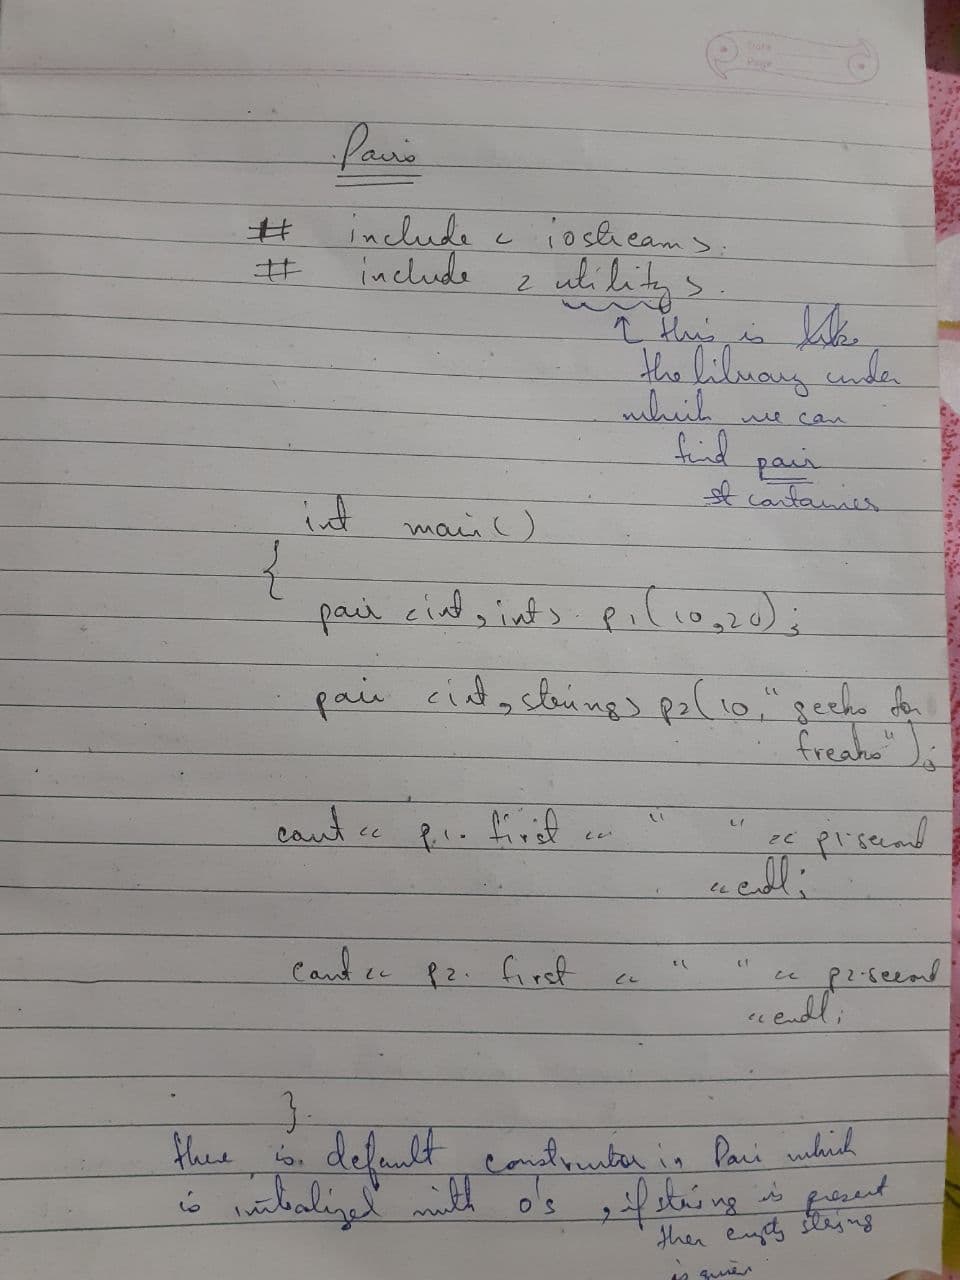 Date
Page
Pairs
# include < iostream>.
# include < utility>.
↑ this is like
the library under
which we can
find pair
st container
int main()
{
pair <int, int> p1(10,20);
pair <int, string> p2(10, "geeks for
freaks");
cout << p1. first << " " << p1.second
<< endl;
cout << p2. first << " " << p2.second
<< endl;
}.
there is default constructor in Pair which
is initialized with 0's, if string is present
then empty string
is given